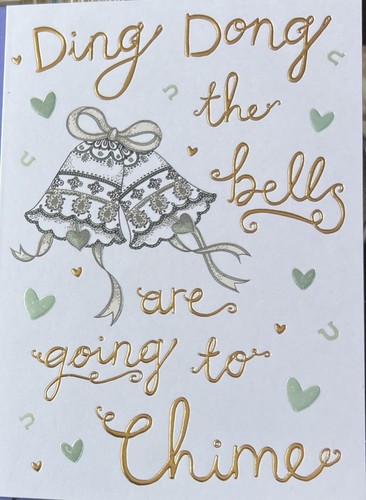 Ding Dong
the
bells
are
going to
Chime